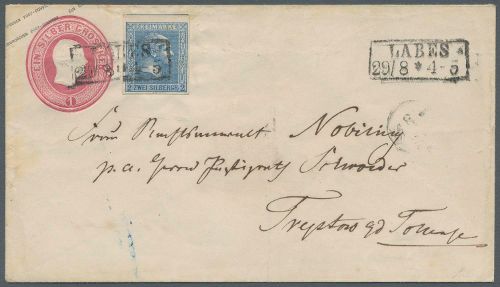 EIN SILBER GROSCHEN
1
FREIMARKE
2 ZWEI SILBERGR. 2
LABES
29/8 * 4-5
LABES
29/8 * 4-5
Herrn Rechtsanwalt Nobiling
p. a. Herrn Justizrath Schroeder
Treptow a/d Tollense